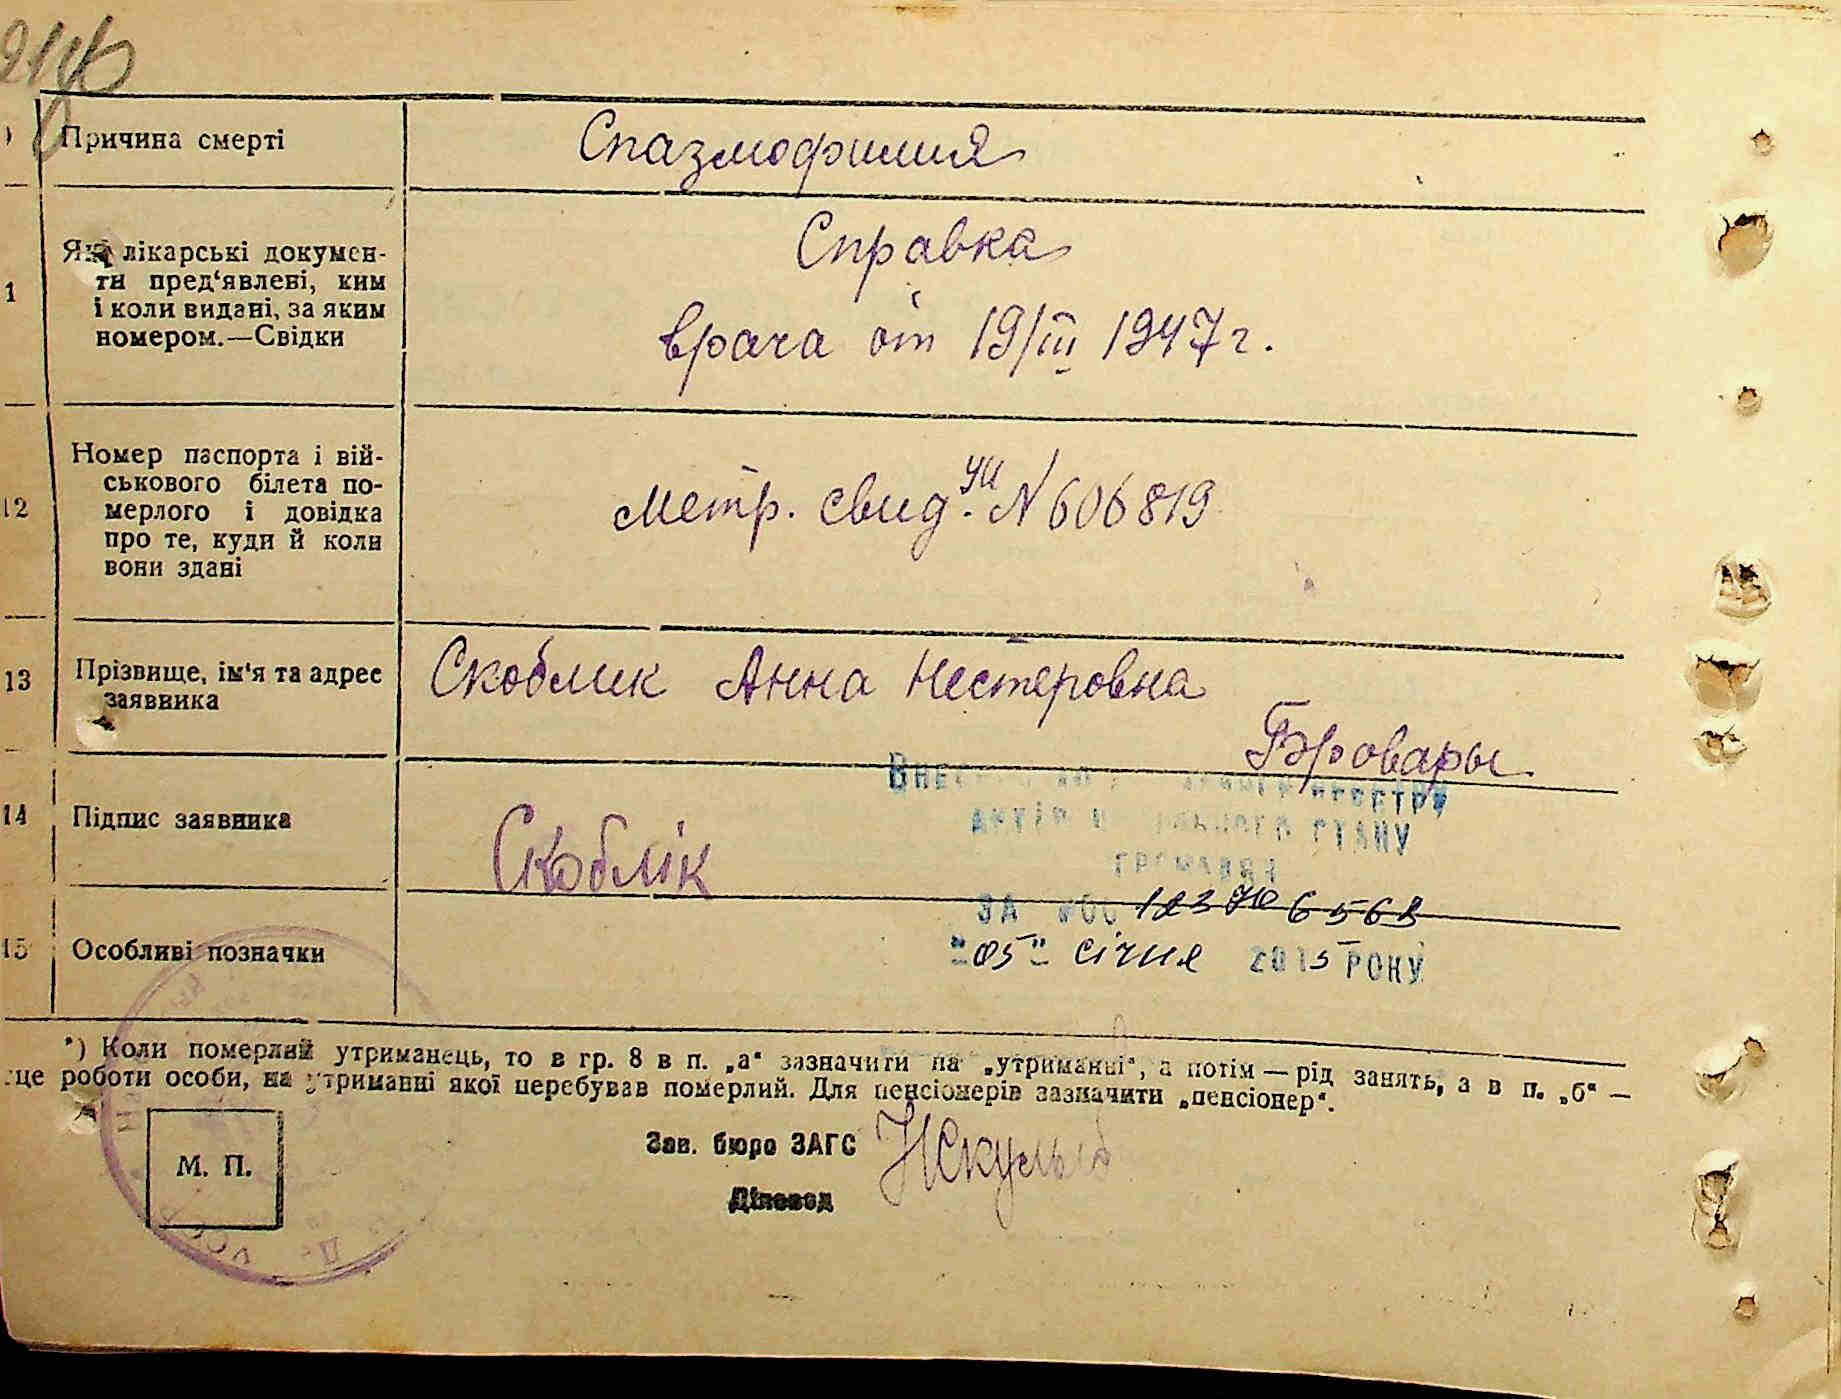 Причина смерті
Спазмофилия
Які лікарські докумен-
ти пред‘явлені, ким
і коли видані, за яким
номером.—Свідки
Справка
врача от 19/III 1947 г.
Номер паспорта і вій-
ськового білета по-
мерлого і довідка
про те, куди й коли
вони здані
Метр. свид. УИ N 606819
13
Прізвище, ім‘я та адрес
заявника
Скоблик Анна Нестеровна
Бровары
14
Підпис заявника
Скоблік
актів стану
громадян
за №00 12376563
"05" січня 2015 року
15
Особливі позначки
*) Коли померлий утриманець, то в гр. 8 в п. „а“ зазначити на „утриманні“, а потім — рід занять, а в п. „б“ —
це роботи особи, на утриманні якої перебував померлий. Для пенсіонерів зазначити „пенсіонер“.
М. П.
Зав. бюро ЗАГС
Діловод